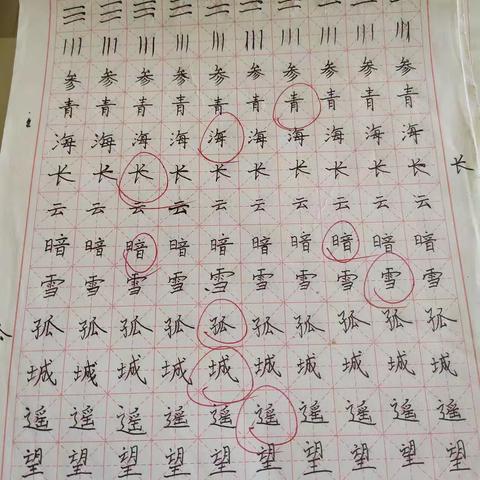 参参参参参参参参参参
青青青青青青青青青青
海海海海海海海海海海
长长长长长长长长长长 长
云云云云云云云云云云
暗暗暗暗暗暗暗暗暗暗
雪雪雪雪雪雪雪雪雪雪
孤孤孤孤孤孤孤孤孤孤
城城城城城城城城城城
遥遥遥遥遥遥遥遥遥遥
望望望望望望望望望望